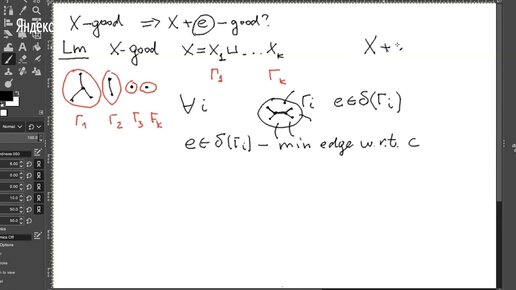 X-good ⟹ X+e-good?
Яндекс
Lm X-good X=X₁⊔...Xₖ X+
Γ₁ Γₖ
∀i Γi e∈δ(Γi)
Γ₁ Γ₂ Γ₃ Γₖ
e∈δ(Γi) – min edge w.r.t. c